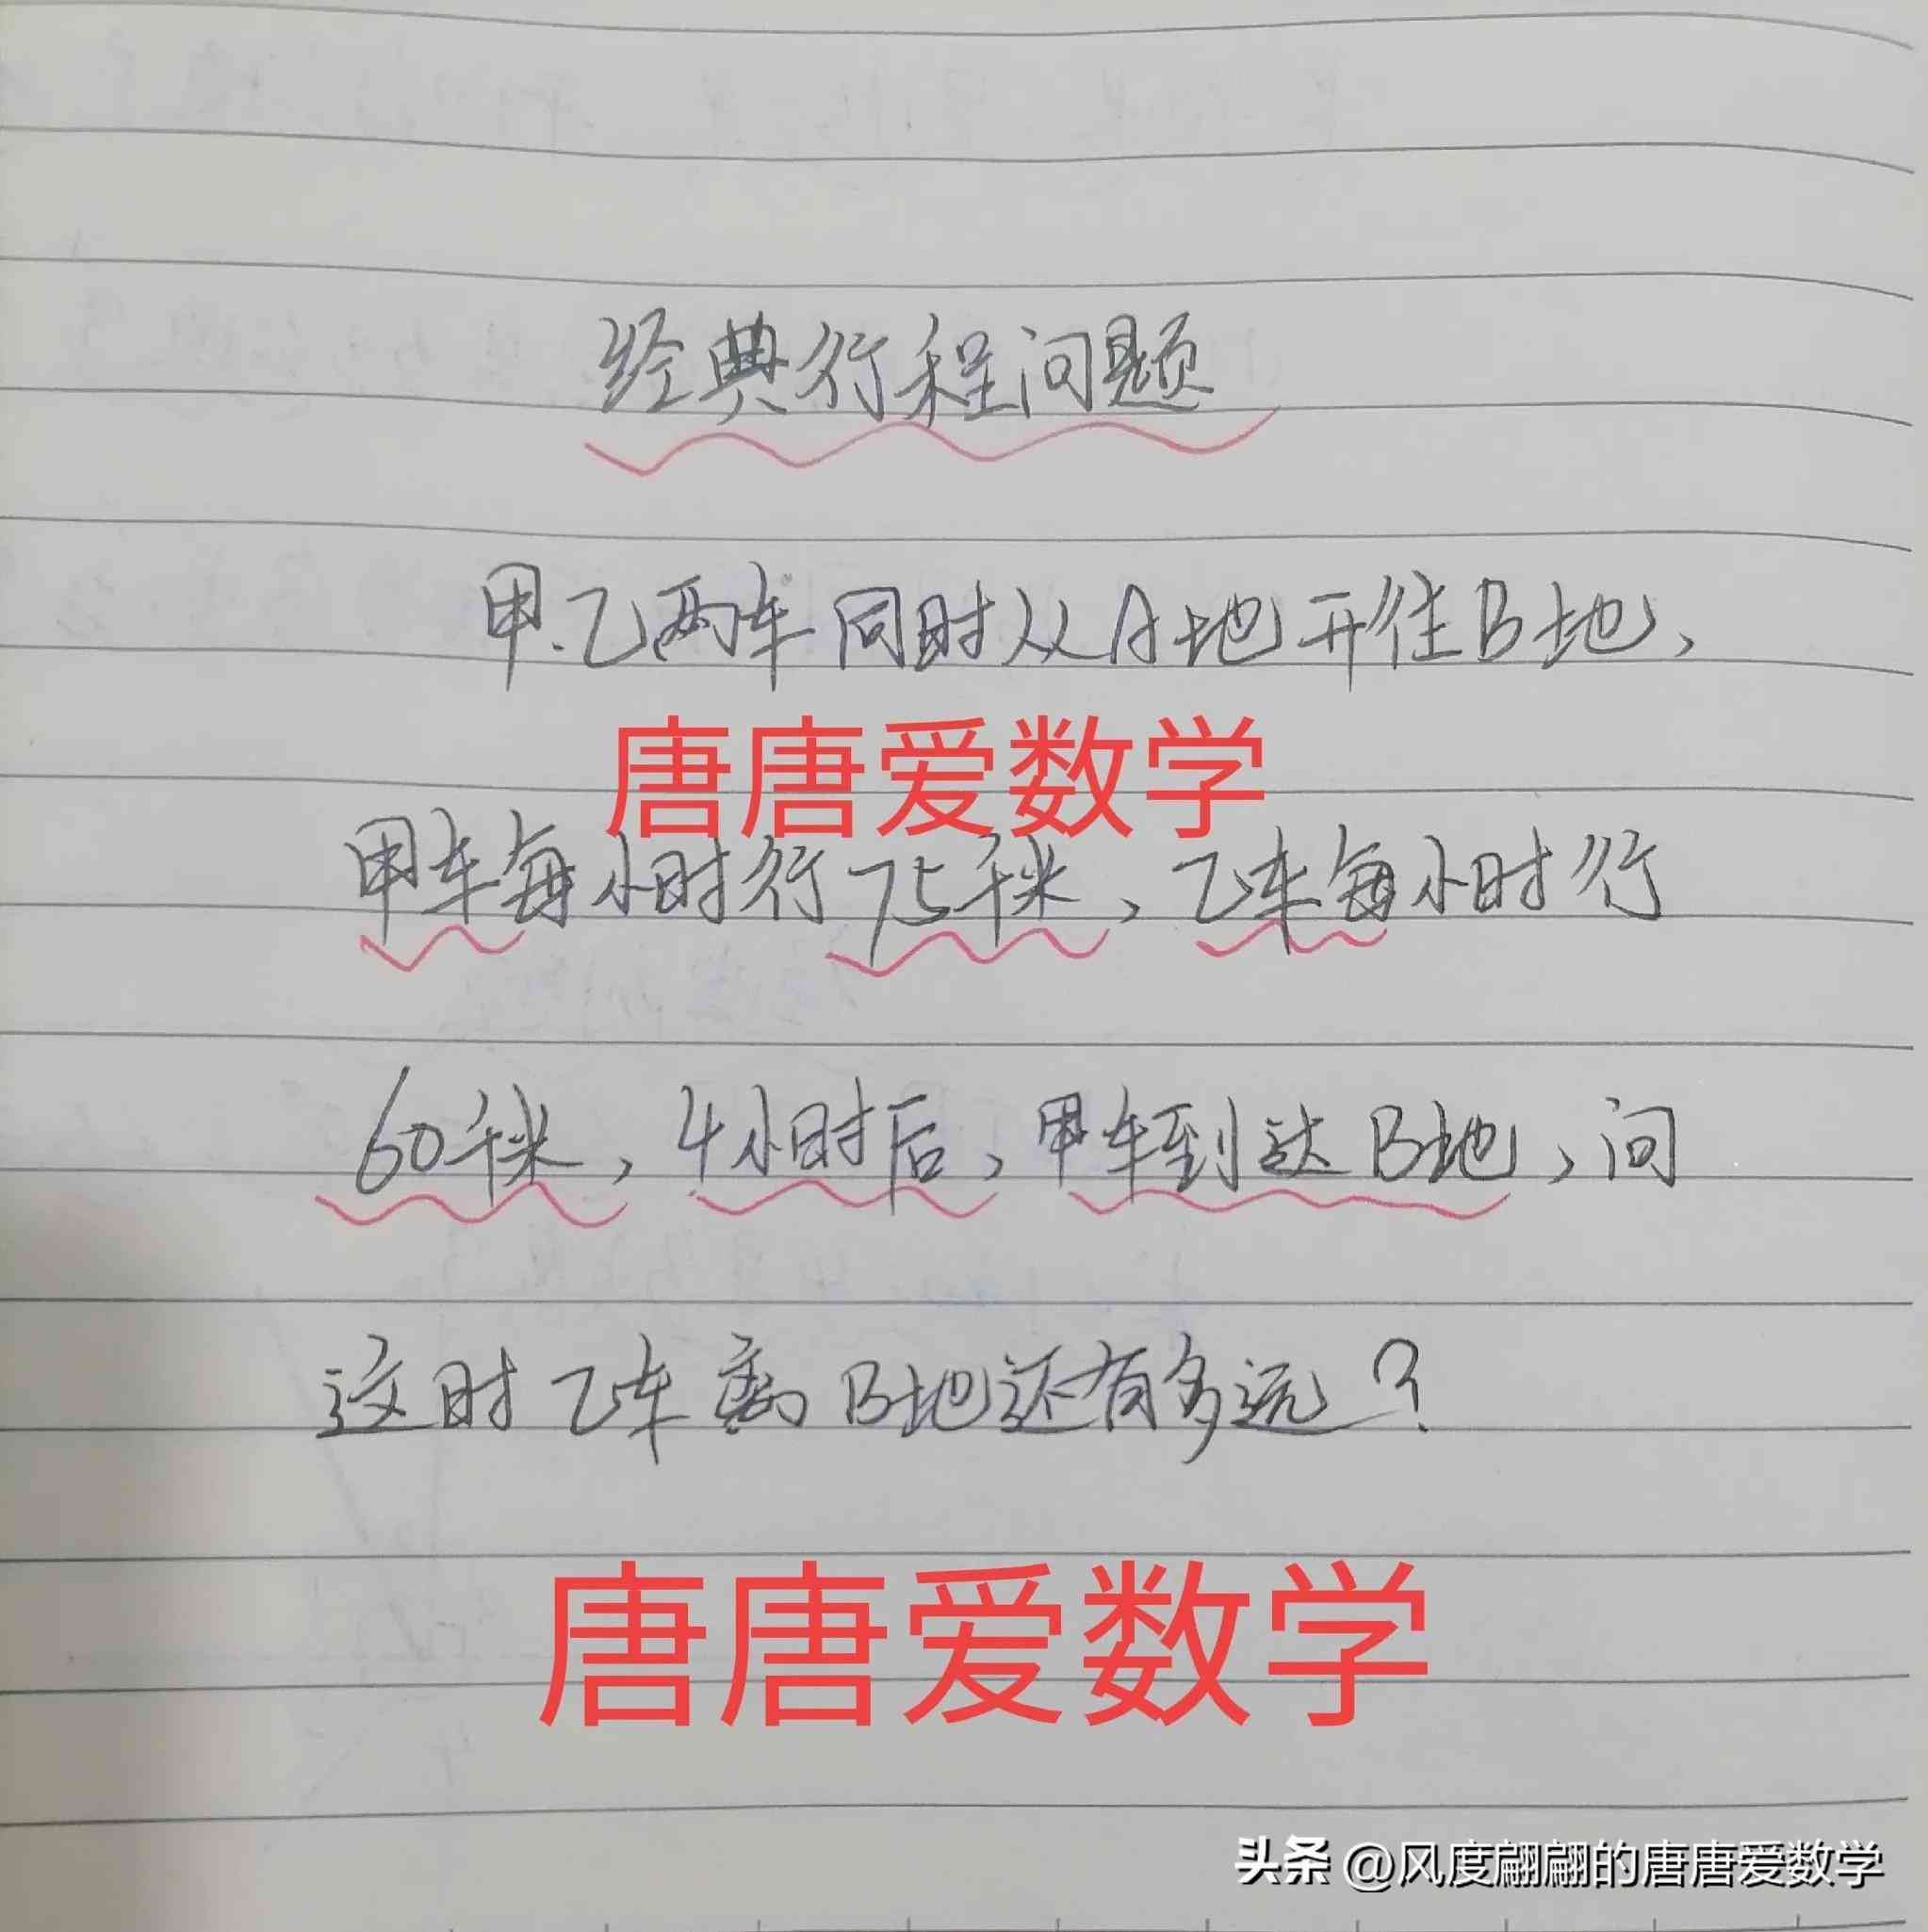 经典行程问题
甲、乙两车同时从A地开往B地，
唐唐爱数学
甲车每小时行75千米，乙车每小时行
60千米，4小时后，甲车到达B地，问
这时乙车离B地还有多远？
唐唐爱数学
头条 @风度翩翩的唐唐爱数学